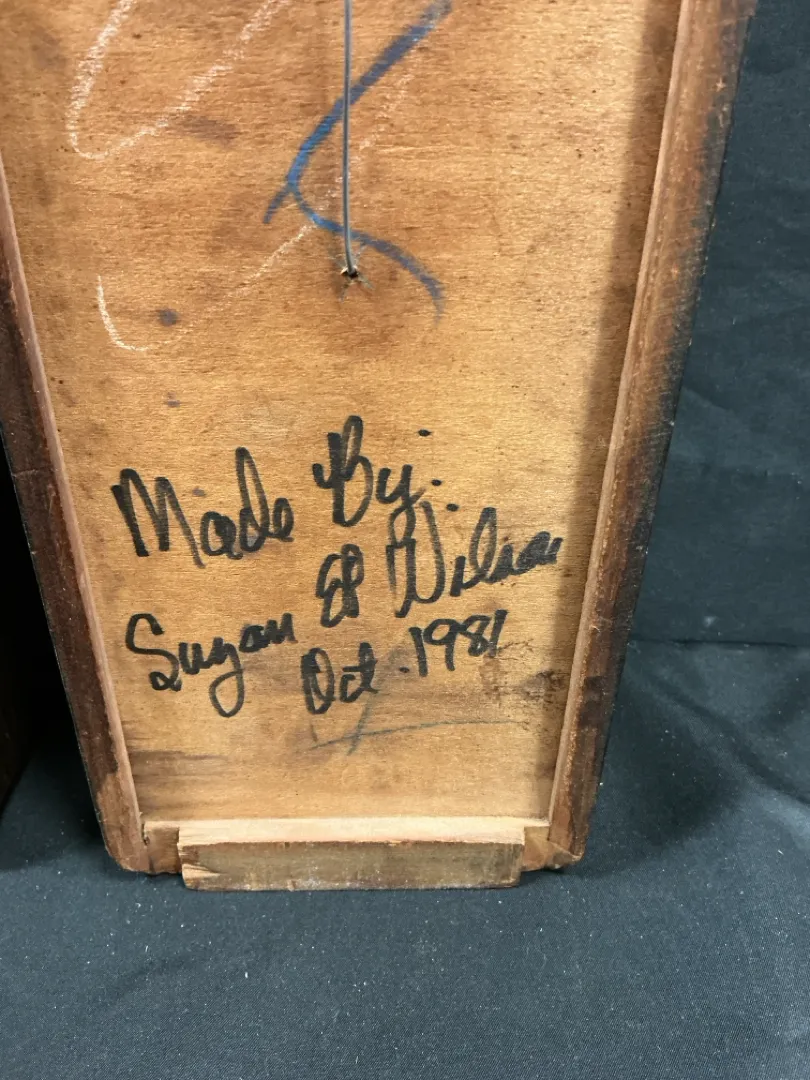 Made By:
Suzan & Wilson
Oct. 1981